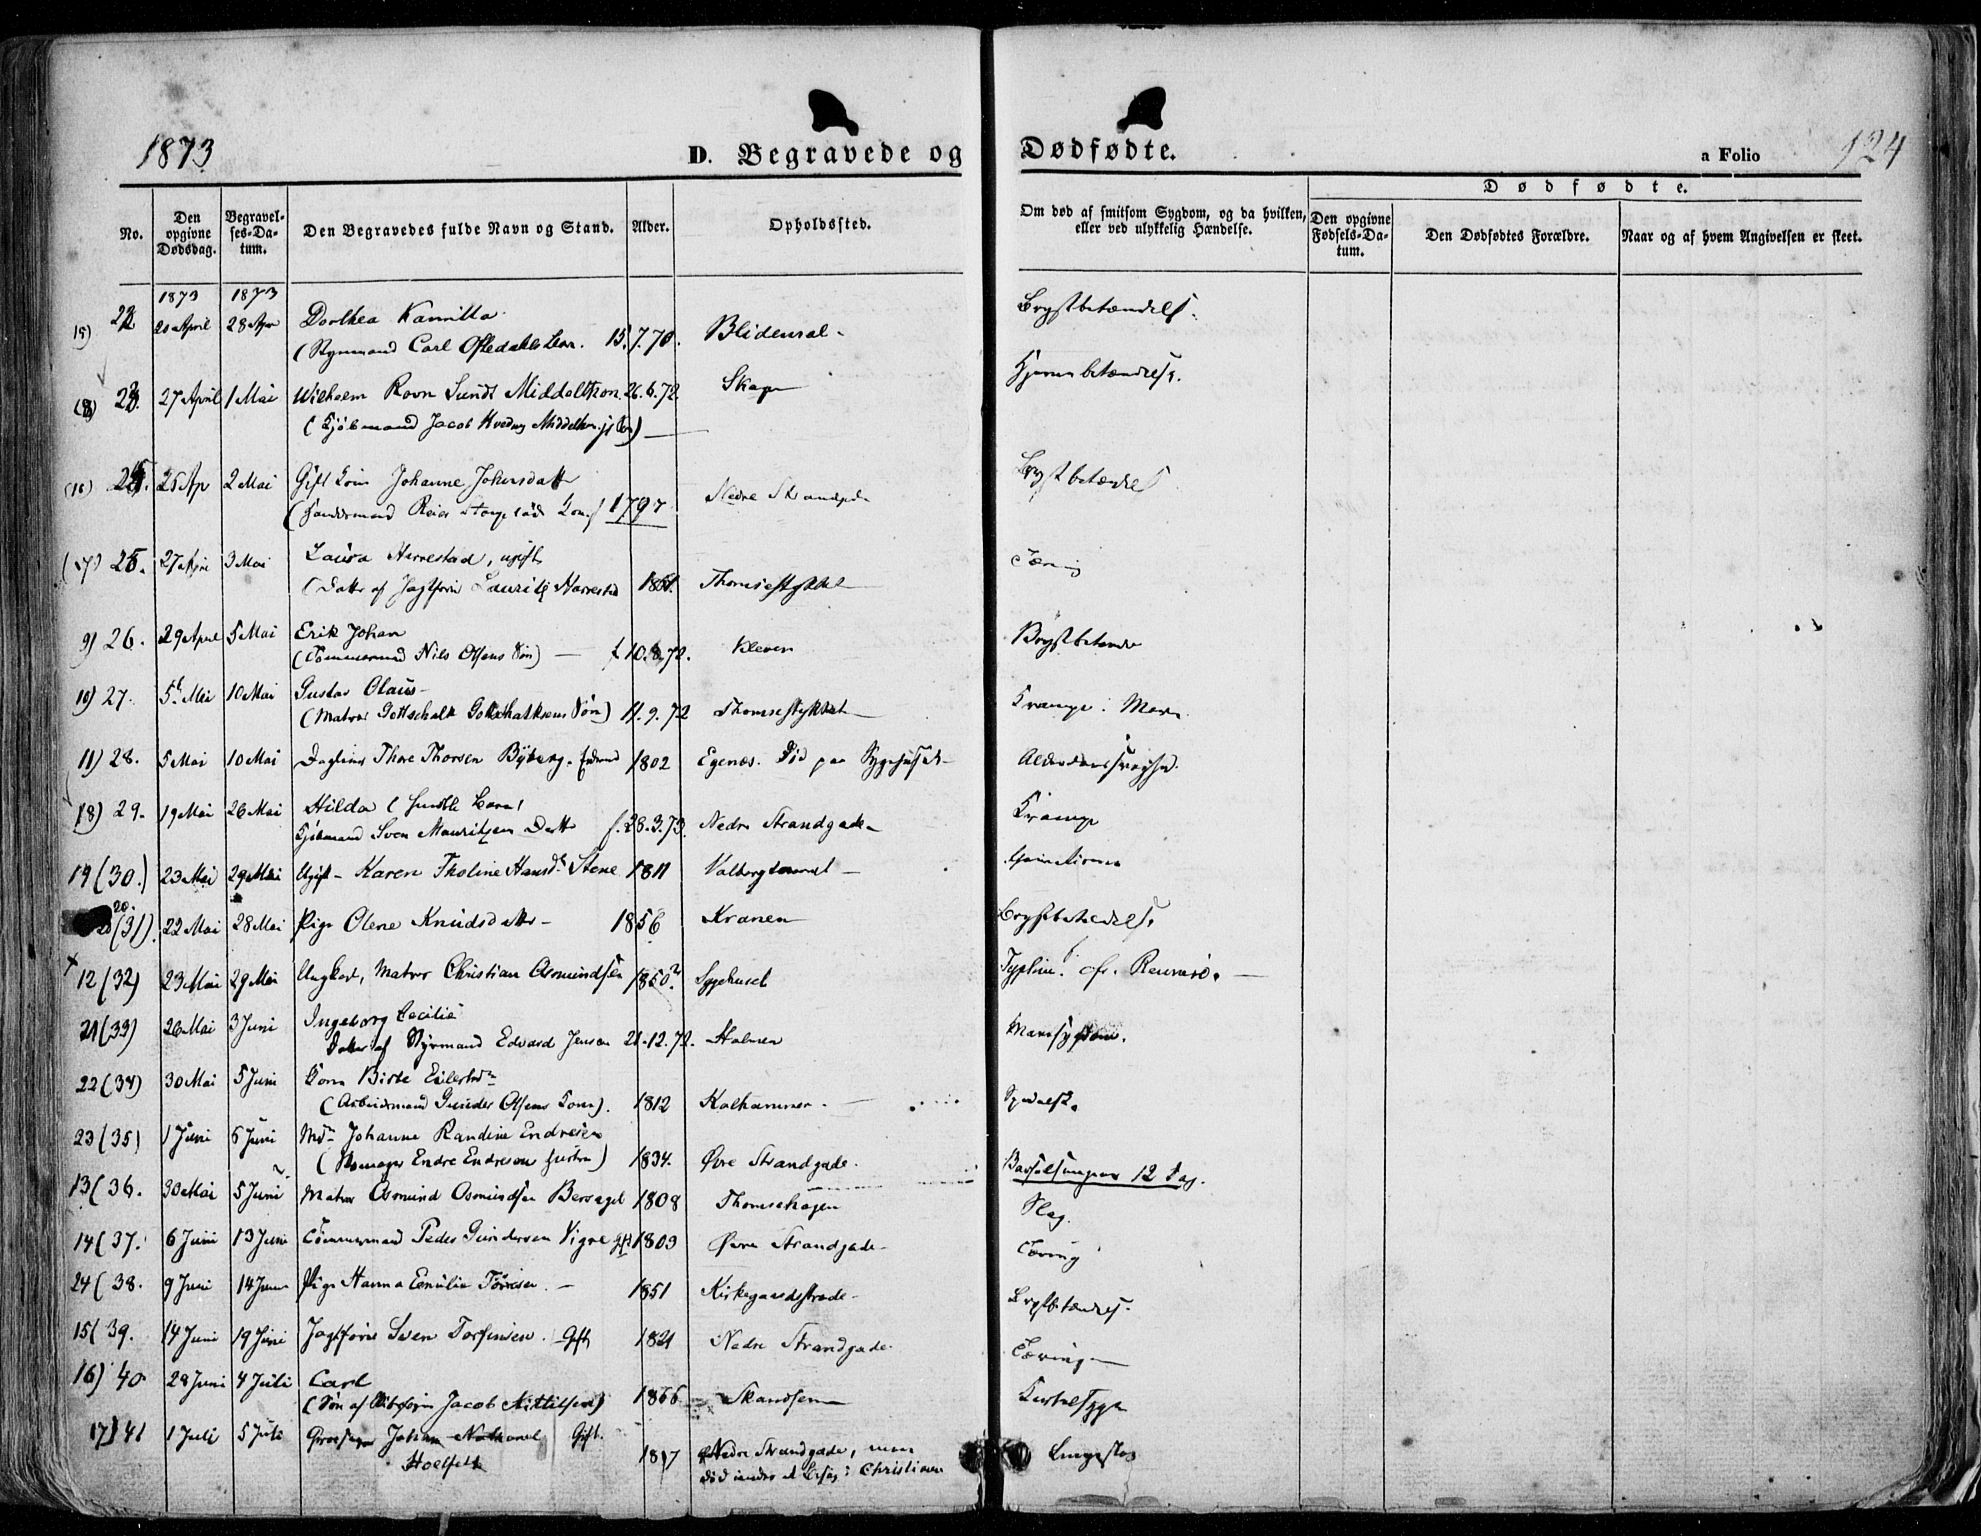 1873
D. Begravede og Dødfødte.
a Folio 124
No.
Den opgivne Dødsdag.
Begravelses-Datum.
Den Begravedes fulde Navn og Stand.
Alder.
Opholdssted.
Om død af smitsom Sygdom, og da hvilken, eller ved ulykkelig Hændelse.
Dødfødte.
Den opgivne Fødsels-Datum.
Den Dødfødtes Forældre.
Naar og af hvem Angivelsen er skeet.
1873 1873
15) 22 21 April 28 Apr Dorthea Kamilla
(Styrmand Carl Oftedahls Barn. 15.7.70. Blidensol - Brystbetændelse.
(8) 23. 27 April 1 Mai Wilhelm Ravn Sundt Middelthon 26.6.72 Skagen Hjernebetændelse.
(Kjøbmand Jacob Middelthon Søn)
(16) 24. 25 Ap 2 Mai Gift Kone Johanne Johnsdatter
1797 Nedre Strandgade Brystbetændelse
(17) 25. 27 Apri 3 Mai Laura Harestad, ugift
(Datter af Jagtfører Lauritz Harrestad 1851. Thomsestykket Tæring
9) 26. 29 April 5 Mai Erik Johan
(Tømmermand Nils Olsens Søn) f 10.8.72. Kleven Brystbetænde
10) 27. 5 Mai 10 Mai Gustav Olaus
(Matros Gottschalk Gottschalksens Søn) 11.9.72 Thomsestykket Krampe i Maven
11) 28. 5 Mai 10 Mai Daglönner Thore Thorsen Byberg. 1802 Egenæs. Död paa Sygehuset Alderdomssvaghed.
18) 29. 19 Mai 26 Mai Hilda
Kjøbmand Sven Mauritzen Datter f. 28.3.73. Nedre Strandgade Krampe
19 (30.) 23 Mai 29 Mai Ugift - Karen Tholine Hansd. Stene 1811 Valbergtaarnet
20 (31). 22 Mai 28 Mai Pige Olene Knudsdatter 1856 Kranen Brystbetændelse
12 (32) 23 Mai 29 Mai Ungkarl, Matros Christian Asmundsen 1850? Sygehuset
21 (33) 26 Mai 3 Juni Ingeborg Cecilie
Datter af Styrmand Edvard Jensen 21.12.72. Holmen Mavesygdom.
22 (34) 30 Mai 5 Juni Kone Birte
(Arbeidsmand Gunder Olsens Kone). 1812 Kolhammer Spedalsk.
23 (35) 1 Juni 6 Juni Md. Johanne Randine Endresen
(Endre Endresens Hustru) 1834. Øvre Strandgade. Barselseng 12 Dag.
13 (36. 30 Mai 5 Juni Matros Asmund Asmundsen Bersagel 1808 Thomsehagen Slag.
14 (37. 6 Juni 13 Juni Tømmermand Peder Gundersen Vigre gft 1809 Øvre Strandgade. Tæring
24 (38. 9 Juni 14 Juni Pige Hanna Emilie Törresen. 1851 Kirkegaardsstræde Brystbetændelse.
15 (39. 14 Juni 19 Juni Jagtfører Sven Torfinsen. Gift 1821 Nedre Strandgade. Tæring
16) 40 28 Juni 4 Juli Carl
(Søn af Jacob Kittilsen) 1866 Skandsen Kjertelsyge
17) 41 1 Juli 5 Juli Johan Gift.
Holfeldt 1817 Nedre Strandgade, men
død under et Besøg i Christiania